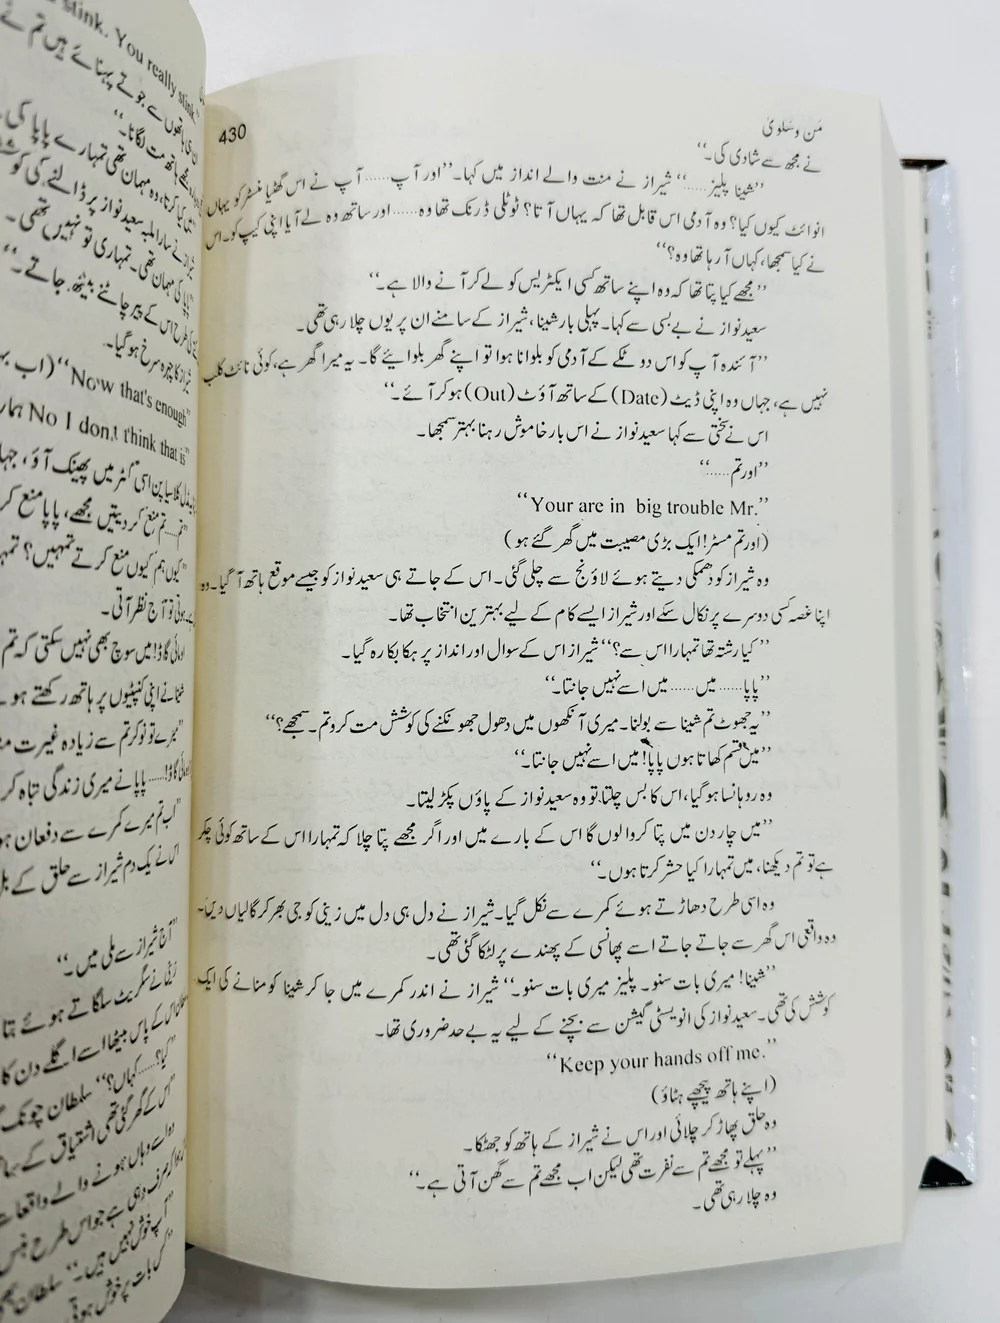 من و سلویٰ
430
نے مجھ سے شادی کی۔“
”شینا پلیز......“ شیراز نے منت والے انداز میں کہا۔ ”اور آپ...... آپ نے اس گھٹیا منسٹر کو یہاں
انوائٹ کیوں کیا؟ وہ آدمی اس قابل تھا کہ یہاں آتا؟ ٹوٹلی ڈرنک تھا وہ...... اور ساتھ وہ لے آیا اپنی کیپ کو۔ اس
نے کیا سمجھا، کہاں آ رہا تھا وہ؟“
”مجھے کیا پتا تھا کہ وہ اپنے ساتھ کسی ایکٹریس کو لے کر آنے والا ہے۔“
سعید نواز نے بے بسی سے کہا۔ پہلی بار شینا، شیراز کے سامنے ان پر یوں چلا رہی تھی۔
”آئندہ آپ کو اس دو ٹکے کے آدمی کو بلوانا ہوا تو اپنے گھر بلوائیے گا۔ یہ میرا گھر ہے، کوئی نائٹ کلب
نہیں ہے، جہاں وہ اپنی ڈیٹ (Date) کے ساتھ آؤٹ (Out) ہو کر آئے۔“
اس نے سختی سے کہا سعید نواز نے اس بار خاموش رہنا بہتر سمجھا۔
”اور تم......“
“Your are in big trouble Mr.”
(اور تم مسٹر! ایک بڑی مصیبت میں گھر گئے ہو)
وہ شیراز کو دھمکی دیتے ہوئے لاؤنج سے چلی گئی۔ اس کے جاتے ہی سعید نواز کو جیسے موقع ہاتھ آ گیا۔ وہ
اپنا غصہ کسی دوسرے پر نکال سکے اور شیراز ایسے کام کے لیے بہترین انتخاب تھا۔
”کیا رشتہ تھا تمہارا اس سے؟“ شیراز اس کے سوال اور انداز پر ہکا بکا رہ گیا۔
”پاپا...... میں...... میں اسے نہیں جانتا۔“
”یہ جھوٹ تم شینا سے بولنا۔ میری آنکھوں میں دھول جھونکنے کی کوشش مت کرو تم۔ سمجھے؟“
”میں قسم کھاتا ہوں پاپا! میں اسے نہیں جانتا۔“
وہ روہانسا ہو گیا، اس کا بس چلتا تو وہ سعید نواز کے پاؤں پکڑ لیتا۔
”میں چار دن میں پتا کروا لوں گا اس کے بارے میں اور اگر مجھے پتا چلا کہ تمہارا اس کے ساتھ کوئی چکر
ہے تو تم دیکھنا، میں تمہارا کیا حشر کرتا ہوں۔“
وہ اسی طرح دھاڑتے ہوئے کمرے سے نکل گیا۔ شیراز نے دل ہی دل میں زینی کو جی بھر کر گالیاں دیں۔
وہ واقعی اس گھر سے جاتے جاتے اسے پھانسی کے پھندے پر لٹکا گئی تھی۔
”شینا! میری بات سنو۔ پلیز میری بات سنو۔“ شیراز نے اندر کمرے میں جا کر شینا کو منانے کی ایک
کوشش کی تھی۔ سعید نواز کی انویسٹی گیشن سے بچنے کے لیے یہ بے حد ضروری تھا۔
“Keep your hands off me.”
(اپنے ہاتھ پیچھے ہٹاؤ)
وہ حلق پھاڑ کر چلائی اور اس نے شیراز کے ہاتھ کو جھٹکا۔
”پہلے تو مجھے تم سے نفرت تھی لیکن اب مجھے تم سے گھن آتی ہے۔“
وہ چلا رہی تھی۔
stink. You really stink.”
ہاتھوں سے جوتے پہنائے ہیں تم نے
ہاتھ مت لگانا۔“
وہ مہمان تھی تمہارے پاپا کی
شیراز نے سارا ملبہ سعید نواز پر ڈالنے کی
کی مہمان تھی۔ تمہاری تو نہیں تھی۔
کی طرح اس کے پیر چاٹنے بیٹھ جاتے۔“
شیراز کا چہرہ سرخ ہو گیا۔
“Now that's enough” (اب
No I don,t think that is”
اسی گٹر میں پھینک آؤ،
”تم...... تم منع کر دیتیں مجھے، پاپا منع
”کیوں ہم کیوں منع کرتے تمہیں؟
ہوتی تو آج نظر آتی۔
گاڈ! میں سوچ بھی نہیں سکتی کہ تم
شینا نے اپنی کنپٹیوں پر ہاتھ رکھتے ہو
تو نوکر تم سے زیادہ غیرت
گاڈ!...... پاپا نے میری زندگی تباہ کر
”اب تم میرے کمرے سے دفعان
اس نے یک دم شیراز سے حلق کے
”آج شیراز سے ملی میں۔“
زینی نے سگریٹ سلگاتے ہوئے
اس کے پاس بیٹھا اسے اگلے دن کا
”کیا؟...... کہاں؟“ سلطان چونک
”اس کے گھر گئی تھی
وہ اسے وہاں ہونے والے واقعات
”آپ خوش نہیں ہیں۔“ سلطان
”کس بات پر خوش ہوتی